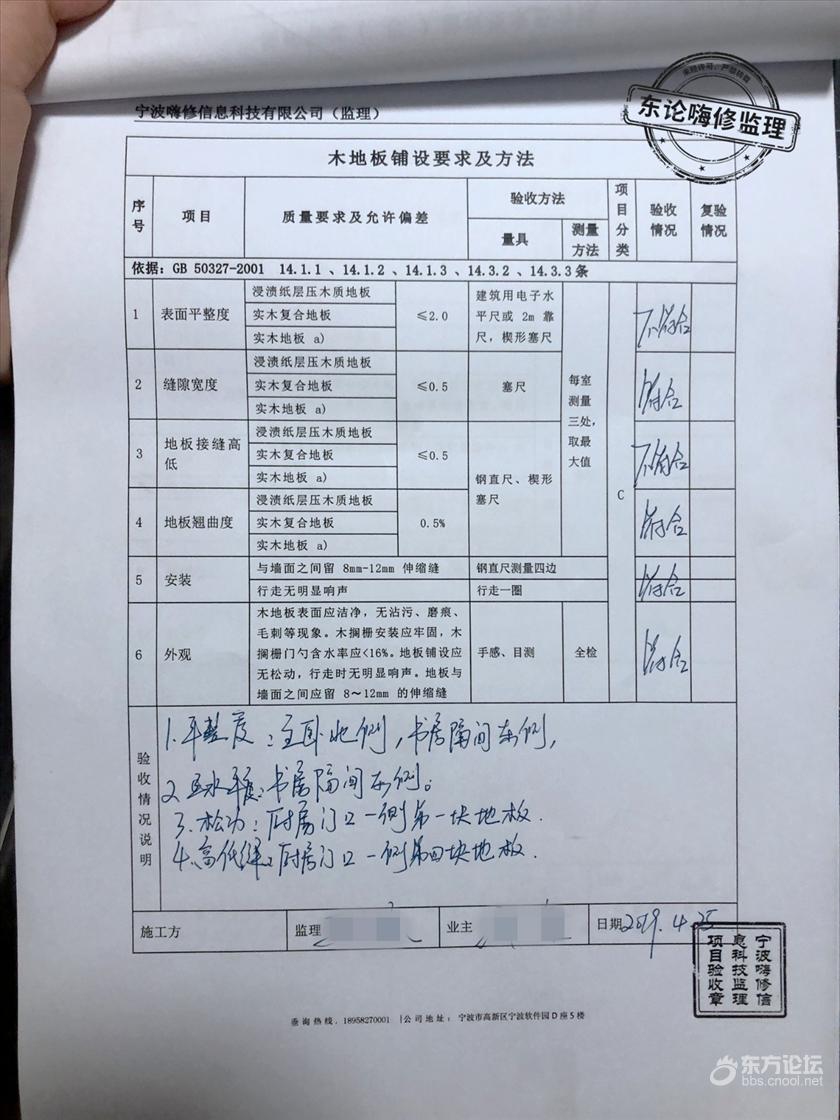 宁波嗨修信息科技有限公司（监理）
东论嗨修监理
木地板铺设要求及方法
序号 项目 质量要求及允许偏差 验收方法 项目分类 验收情况 复验情况
量具 测量方法
依据：GB 50327-2001 14.1.1 、14.1.2 、14.1.3 、14.3.2 、14.3.3条
1 表面平整度 浸渍纸层压木质地板 ≤2.0 建筑用电子水平尺或 2m 靠尺，楔形塞尺 每室测量三处，取最大值 C 不符合
实木复合地板
实木地板 a)
2 缝隙宽度 浸渍纸层压木质地板 ≤0.5 塞尺 符合
实木复合地板
实木地板 a)
3 地板接缝高低 浸渍纸层压木质地板 ≤0.5 钢直尺、楔形塞尺 不符合
实木复合地板
实木地板 a)
4 地板翘曲度 浸渍纸层压木质地板 0.5% 符合
实木复合地板
实木地板 a)
5 安装 与墙面之间留 8mm-12mm 伸缩缝 钢直尺测量四边 符合
行走无明显响声 行走一圈
6 外观 木地板表面应洁净，无沾污、磨痕、 手感、目测 全检 符合
毛刺等现象。木搁栅安装应牢固，木
搁栅门勺含水率应<16%。地板铺设应
无松动，行走时无明显响声。地板与
墙面之间应留 8～12mm 的伸缩缝
验收情况说明
1.平整度：主卧北侧，书房隔间东侧，
2.水平度：书房隔间东侧。
3.松动：厨房门口一侧第一块地板.
4.高低缝：厨房门口一侧第四块地板.
施工方 监理 业主 日期2019.4.25
宁波嗨修信息科技监理项目验收章
垂询热线．18958270001 |公司地址： 宁波市高新区宁波软件园D座5楼
东方论坛
bbs.cnool.net